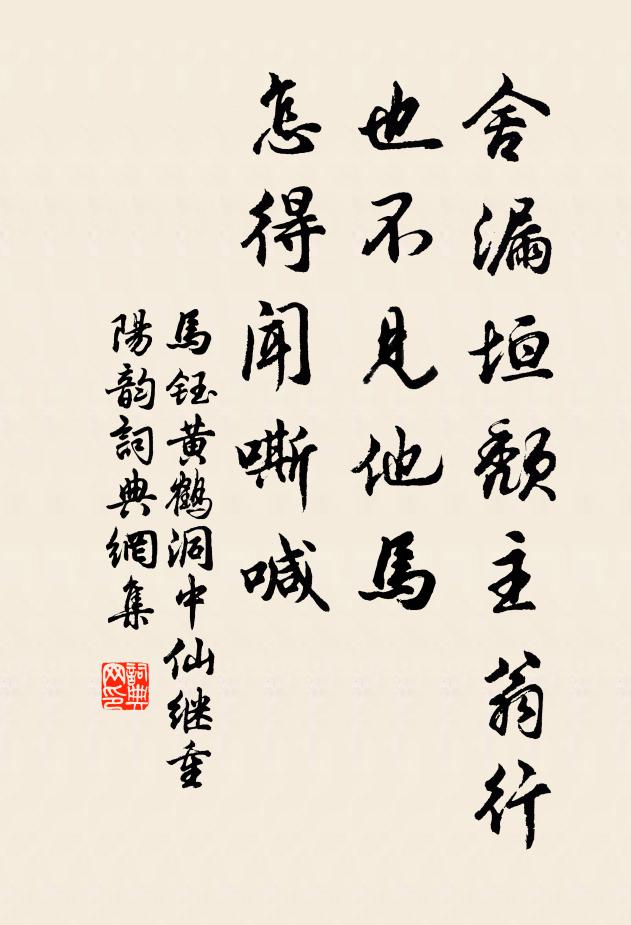 舍漏垣颓主翁行
也不見他馬
怎得聞嘶喊
馬鈺黄鶴洞中仙继重
陽韵詞典網集
詞典網印